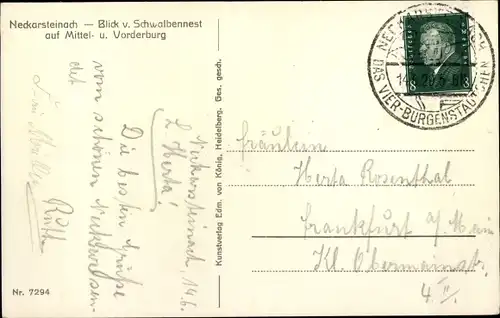 Neckarsteinach — Blick v. Schwalbennest
auf Mittel- u. Vorderburg
DAS VIER-BURGENSTÄDTCHEN
8
Neckarsteinach, 14.6.
L. Herta!
Die besten Grüße
vom schönen
det
Ruth
Kunstverlag Edm. von König, Heidelberg. Ges. gesch.
Fräulein
Herta Rosenthal
Frankfurt a/Main
Kl. Obermainstr.
4 II.
Nr. 7294